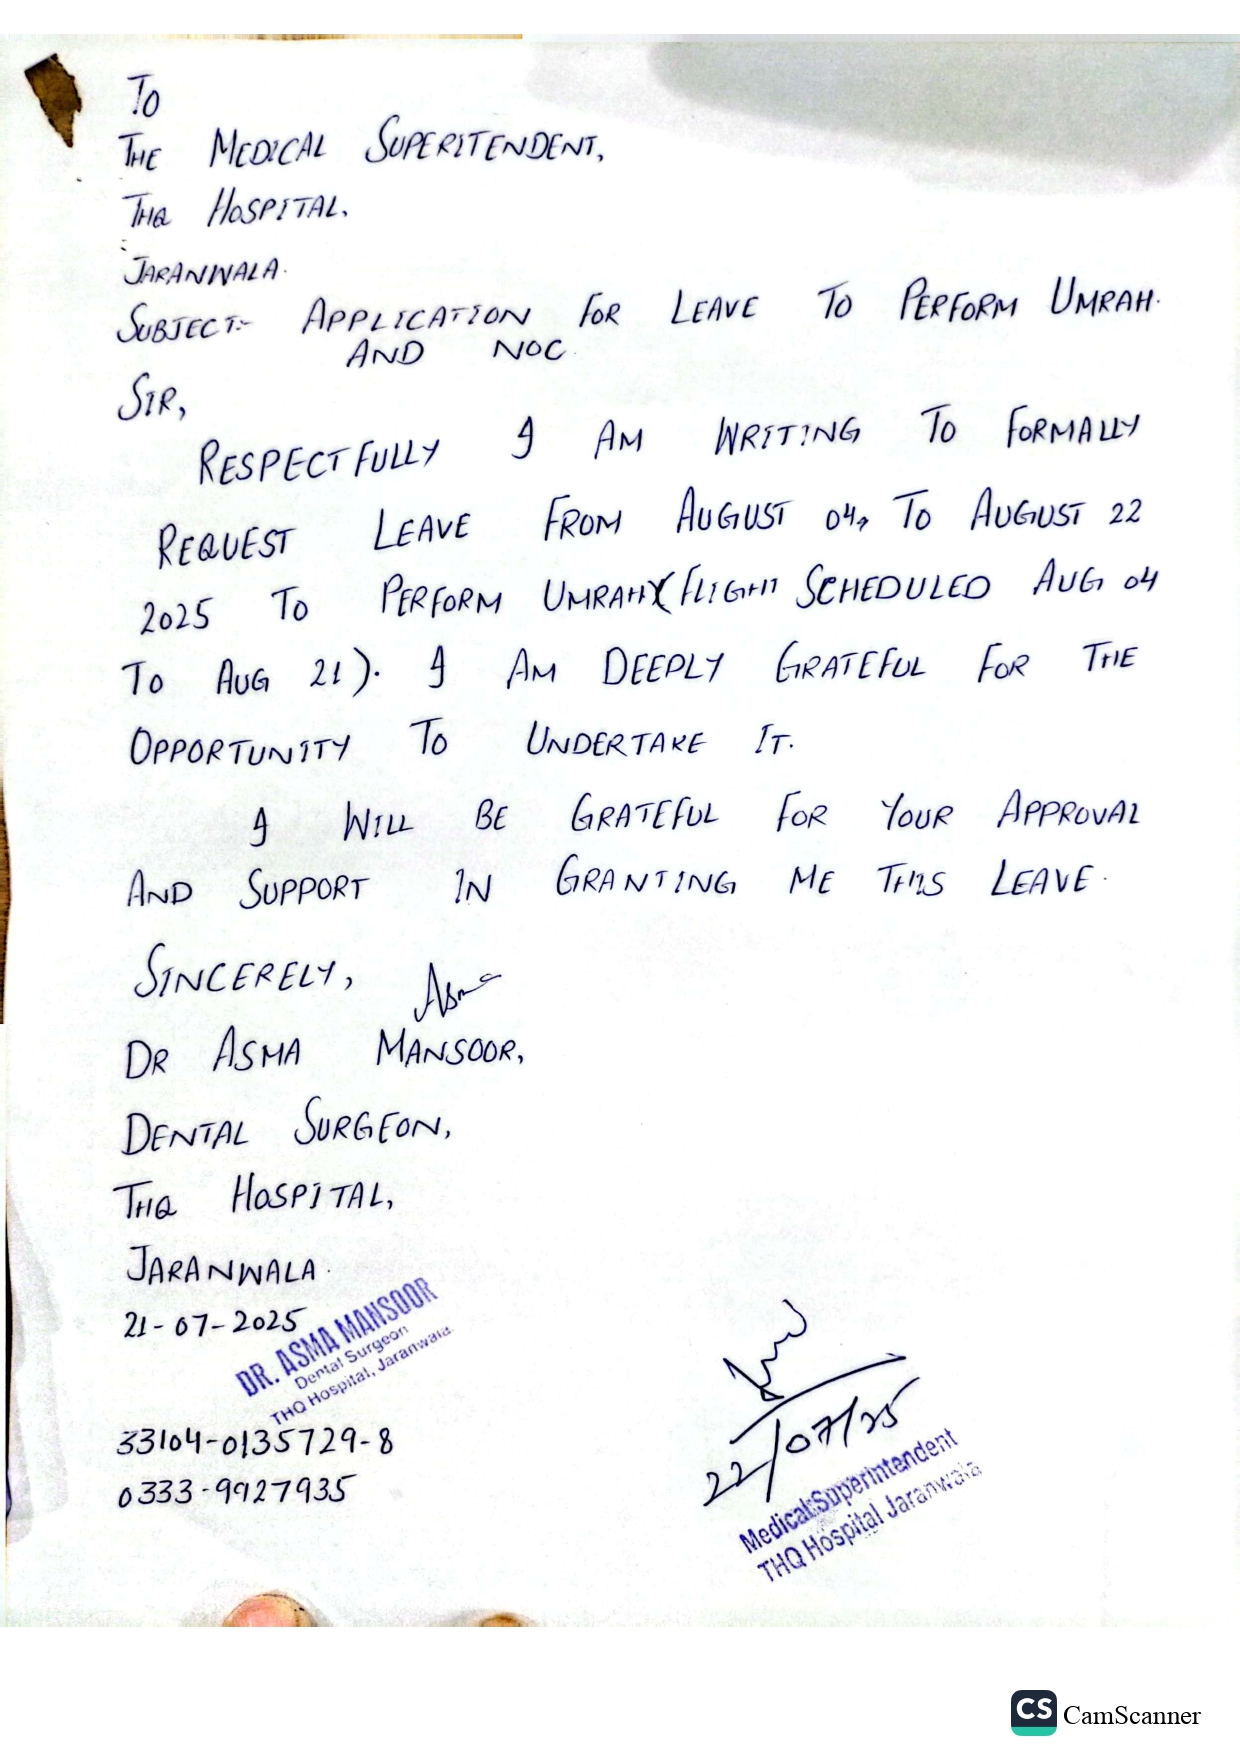 To
THE MEDICAL SUPERITENDENT,
THQ HOSPITAL.
JARANWALA.
SUBJECT:- APPLICATION FOR LEAVE TO PERFORM UMRAH.
AND NOC.
SIR,
RESPECTFULLY I AM WRITING TO FORMALLY
REQUEST LEAVE FROM AUGUST 04, TO AUGUST 22
2025 TO PERFORM UMRAH (FLIGHT SCHEDULED AUG 04
TO AUG 21). I AM DEEPLY GRATEFUL FOR THE
OPPORTUNITY TO UNDERTAKE IT.
I WILL BE GRATEFUL FOR YOUR APPROVAL
AND SUPPORT IN GRANTING ME THIS LEAVE.
SINCERELY,
Asma
DR ASMA MANSOOR,
DENTAL SURGEON,
THQ HOSPITAL,
JARANWALA.
21-07-2025
DR. ASMA MANSOOR
Dental Surgeon
THQ Hospital, Jaranwala.
33104-0135729-8
0333-9927935
22/07/25
Medical Superintendent
THQ Hospital Jaranwala
CS CamScanner